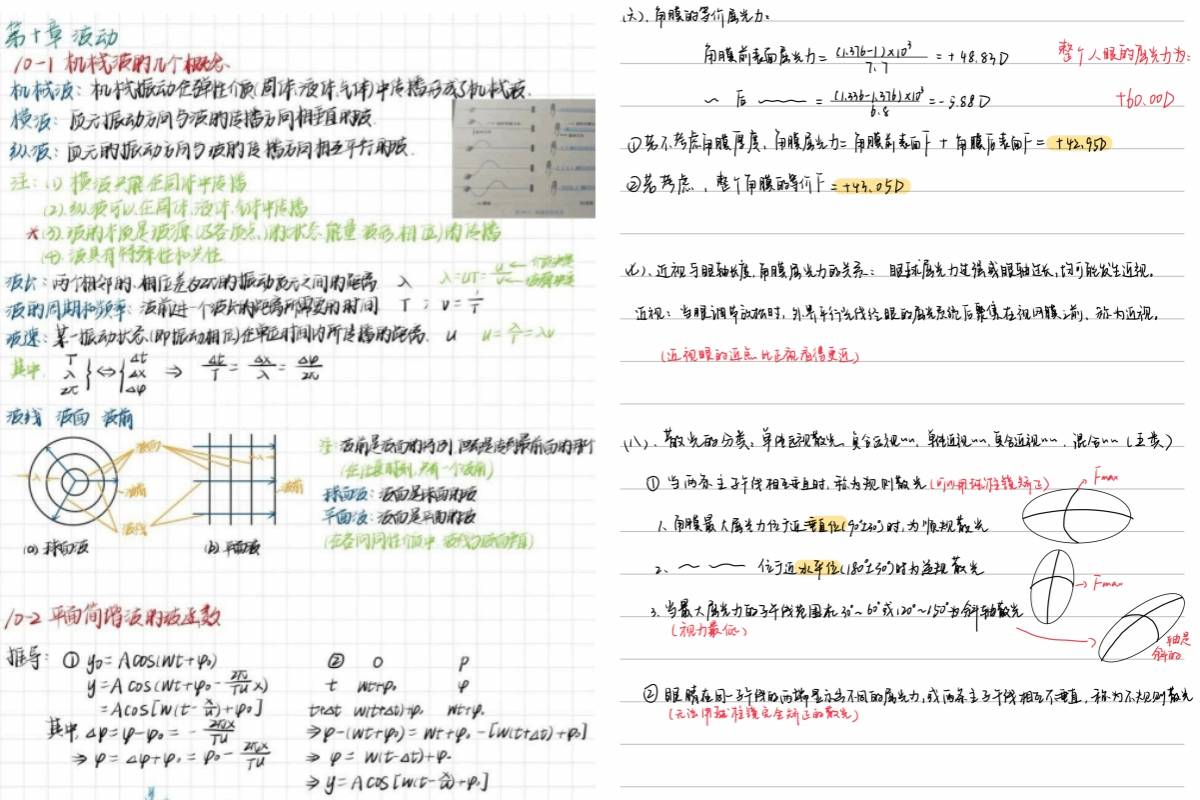 第十章 波动
10-1 机械波的几个概念
机械波：机械振动在弹性介质(固体、液体、气体)中传播形成了机械波.
横波：质元振动方向与波的传播方向相垂直的波.
纵波：质元的振动方向与波的传播方向相互平行的波.
注：(1) 横波只能在固体中传播
(2).纵波可以在固体、液体、气体中传播
*(3).波的本质是波源(及各质点)的状态、能量、波形、相位的传播
(4).波具有特殊性和共性
波长：两个相邻的、相位差为2π的振动质元之间的距离 λ λ=uT=u/υ
波的周期和频率：波前进一个波长的距离所需要的时间 T ; υ=1/T
波速：某一振动状态(即振动相位)在单位时间内所传播的距离. u u=λ/T=λυ
其中. T λ 2π } ⇔ { Δt Δx Δφ ⇒ Δt/T = Δx/λ = Δφ/2π
波线 波面 波前
波面
λ
波前
波线
λ
波前
(a) 球面波 (b) 平面波
注：波前是波面的特例,
(在任意时刻,只有一个波前)
球面波：波面是球面的波
平面波：波面是平面的波
(在各向同性介质中 波线与波面垂直)
10-2 平面简谐波的波函数
推导： ① y₀=Acos(wt+φ₀)
y=Acos(wt+φ₀-2πu/Tu x)
=Acos[w(t-x/u)+φ₀]
其中. Δφ=φ-φ₀=-2πx/Tu
⇒φ=Δφ+φ₀=φ₀-2πx/Tu
② O P
t wt+φ₀ φ
t+Δt w(t+Δt)+φ₀ wt+φ₀
⇒φ-(wt+φ₀)=wt+φ₀-[w(t+Δt)+φ₀]
⇒ φ=w(t-Δt)+φ₀
⇒ y=Acos[w(t-x/u)+φ₀]
(六)、角膜的等价屈光力：
角膜前表面屈光力= (1.376-1)×10³/7.7 =+48.83D
整个人眼的屈光力为:
〜 后 〜〜 = (1.336-1.376)×10³/6.8 =-5.88D
+60.00D
①若不考虑角膜厚度，角膜屈光力= 角膜前表面F + 角膜后表面F= +42.95D
②若考虑，整个角膜的等价F= +43.05D
(七)、近视与眼轴长度、角膜屈光力的关系： 眼球屈光力过强或眼轴过长,均可能发生近视。
近视：当眼调节放松时，外界平行光线经眼的屈光系统后聚集在视网膜之前，称为近视。
(近视眼的近点比正视眼得更近)
(八)、散光的分类：单纯远视散光、复合远视〃、单纯近视〃、复合近视〃、混合〃(五类)
① 当两条主子午线相互垂直时，称为规则散光(可以用球柱镜矫正)
Fmax
1. 角膜最大屈光力位于近垂直位(90°±30°)时，为顺规散光
2. 〜 〜〜 位于近水平位(180°±30°)时为逆规散光
Fmax
3. 当最大屈光力的子午线范围在30°~60°或120°~150°为斜轴散光
(视力最低)
轴是
斜的
② 眼睛在同一子午线的两端显示出不同的屈光力,或两条主子午线相互不垂直，称为不规则散光
(无法用球柱镜完全矫正的散光)